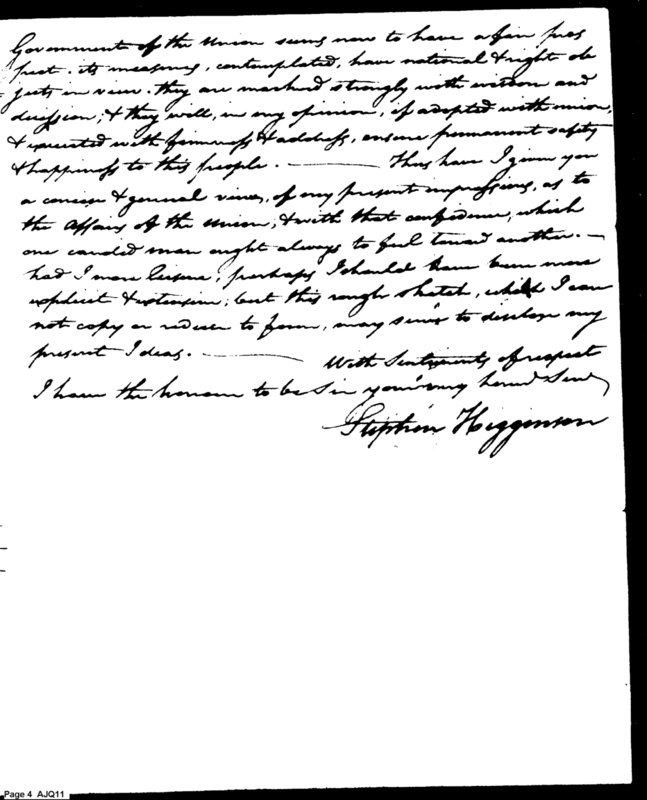 Government of the Union seems now to have a fair pros
pect. its measures, contemplated, have national & right ob
jects in view. they are marked strongly with wisdom and
decission, & they will, in my opinion, if adopted with union,
& executed with firmness & address, ensure permanent safety
& happiness to this people. ——— Thus have I given you
a concise & general view, of my present impressions, as to
the affairs of the Union; & with that confidence, which
one candid man ought always to feel toward another. —
had I more leisure, perhaps I should have been more
explicit & extensive; but this rough sketch, which I can
not copy or reduce to form, may serve to disclose my
present Ideas. ——— With Sentiments of respect
I have the honour to be Sir your very hum Serv
Stephen Higginson
Page 4 AJQ11